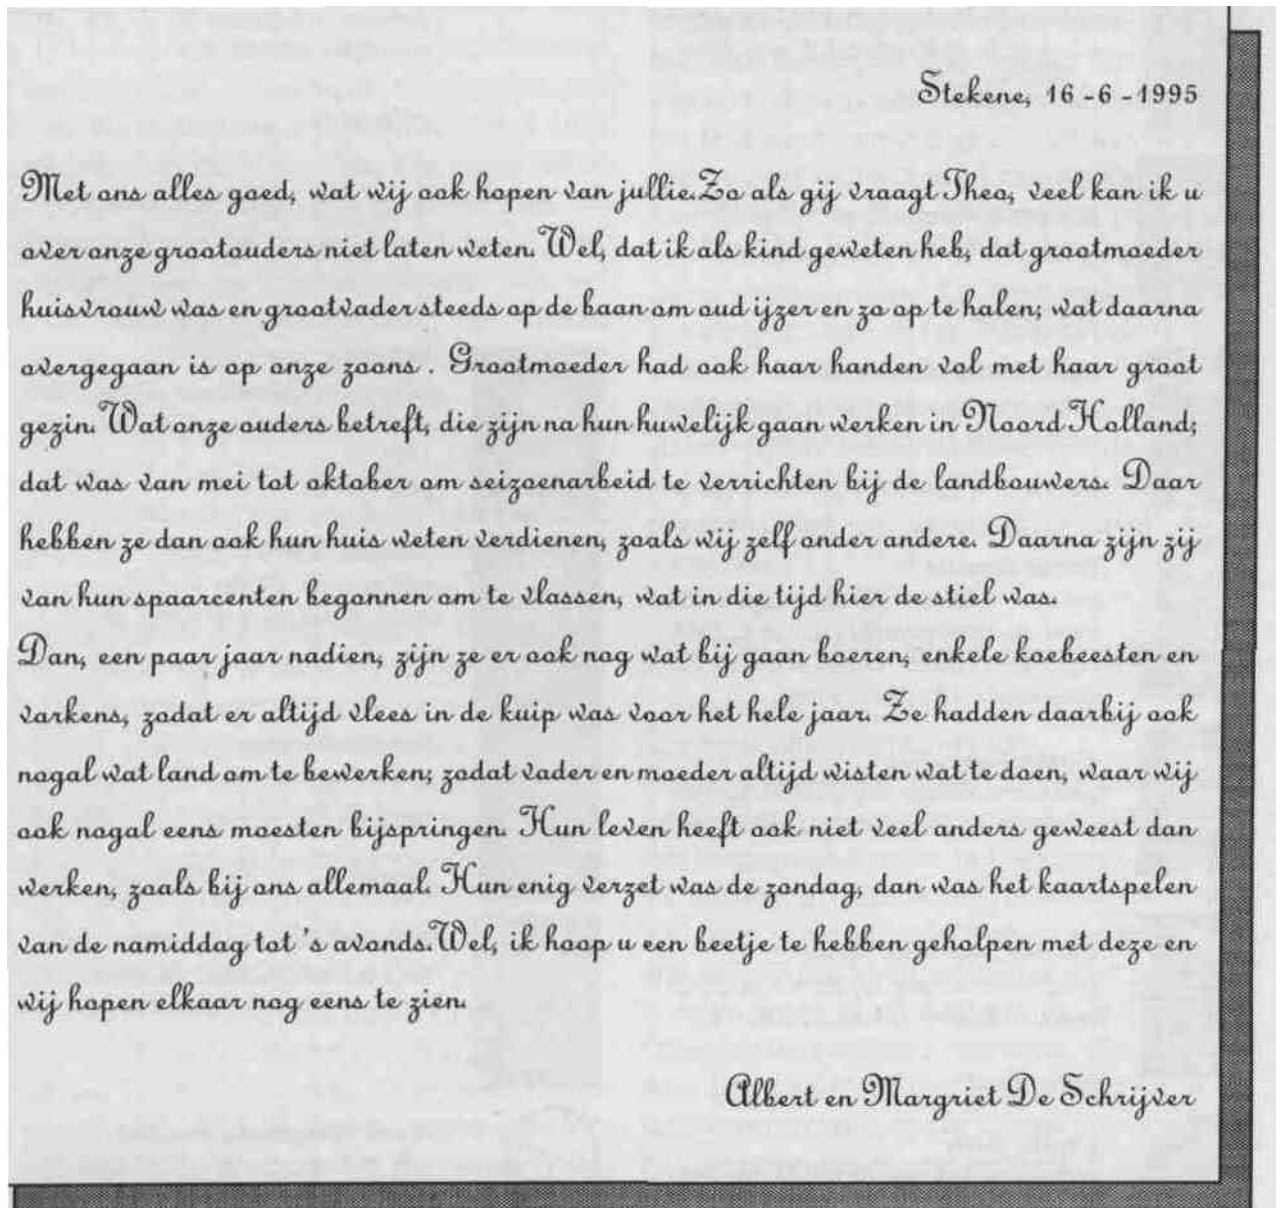 Stekene, 16 -6 -1995
Met ons alles goed, wat wij ook hopen van jullie. Zo als gij vraagt Theo, veel kan ik u
over onze grootouders niet laten weten. Wel, dat ik als kind geweten heb, dat grootmoeder
huisvrouw was en grootvader steeds op de baan om oud ijzer en zo op te halen; wat daarna
overgegaan is op onze zoons . Grootmoeder had ook haar handen vol met haar groot
gezin. Wat onze ouders betreft, die zijn na hun huwelijk gaan werken in Noord Holland;
dat was van mei tot oktober om seizoenarbeid te verrichten bij de landbouwers. Daar
hebben ze dan ook hun huis weten verdienen, zoals wij zelf onder andere. Daarna zijn zij
van hun spaarcenten begonnen om te vlassen, wat in die tijd hier de stiel was.
Dan, een paar jaar nadien, zijn ze er ook nog wat bij gaan boeren, enkele koebeesten en
varkens, zodat er altijd vlees in de kuip was voor het hele jaar. Ze hadden daarbij ook
nogal wat land om te bewerken; zodat vader en moeder altijd wisten wat te doen, waar wij
ook nogal eens moesten bijspringen. Hun leven heeft ook niet veel anders geweest dan
werken, zoals bij ons allemaal. Hun enig verzet was de zondag, dan was het kaartspelen
van de namiddag tot 's avonds. Wel, ik hoop u een beetje te hebben geholpen met deze en
wij hopen elkaar nog eens te zien.
Albert en Margriet De Schrijver